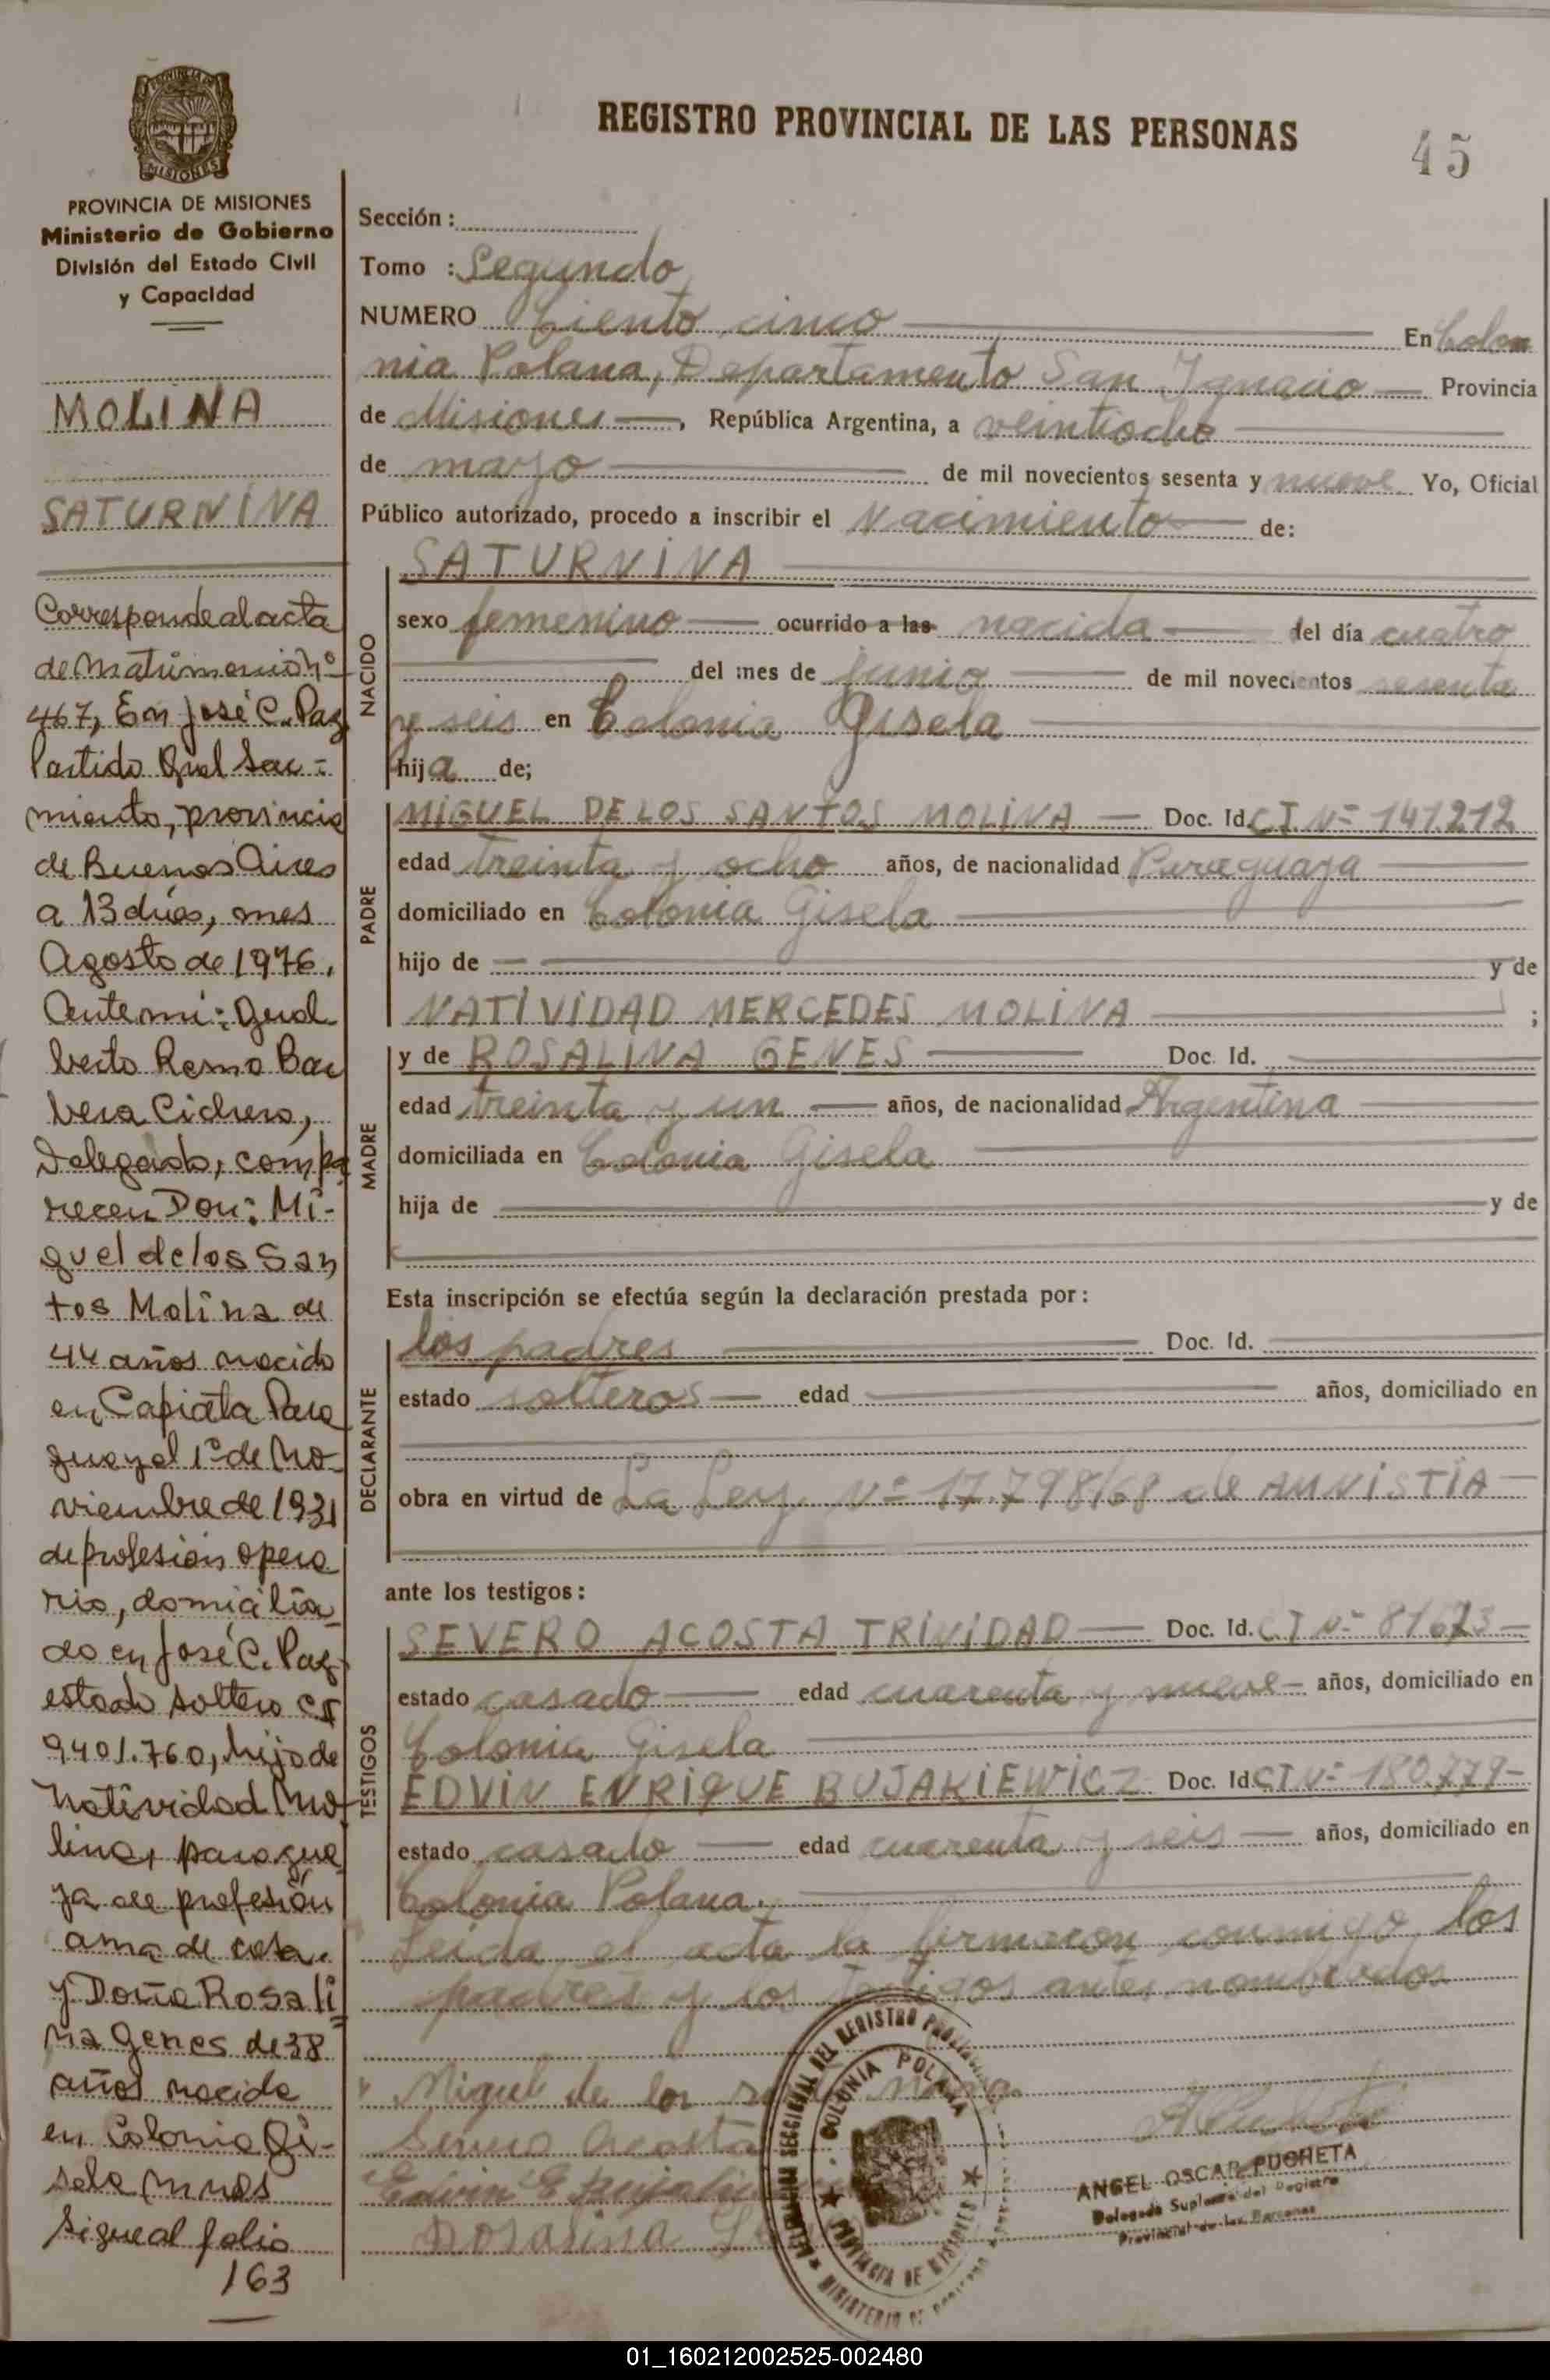 REGISTRO PROVINCIAL DE LAS PERSONAS
45
PROVINCIA DE
MISIONES
PROVINCIA DE MISIONES
Ministerio de Gobierno
División del Estado Civil
y Capacidad
MOLINA
SATURNINA
Corresponde al acta
de Matrimonio Nº
467, En José C. Paz
Partido Gral Sar-
miento, provincia
de Buenos Aires
a 13 días, mes
Agosto de 1976,
Ante mi: Gual
berto Remo Bar
bera Cichero,
Delegado, compa
recen Don: Mi-
guel de los San
tos Molina de
44 años nacido
en Capiata Para
guay el 1º de No-
viembre de 1931
de profesión opera
rio, domicilia
do en José C. Paz
estado soltero CI
9401.760, hijo de
Natividad Mo-
lina, paragua
ya de profesión
ama de casa.
y Doña Rosali
na Genes de 38
años nacida
en Colonia Gi-
sela Mnes
Sigue al folio
163
Sección :
Tomo : Segundo
NUMERO Ciento cinco En Colo
nia Polana, Departamento San Ignacio Provincia
de Misiones , República Argentina, a veintiocho
de mayo de mil novecientos sesenta y nueve Yo, Oficial
Público autorizado, procedo a inscribir el Nacimiento de:
NACIDO
SATURNINA
sexo femenino ocurrido a las nacida del día cuatro
del mes de junio de mil novecientos sesenta
y seis en Colonia Gisela
hija de;
PADRE
MIGUEL DE LOS SANTOS MOLINA Doc. Id. C.I. Nº 141.212
edad treinta y ocho años, de nacionalidad Paraguaya
domiciliado en Colonia Gisela
hijo de y de
NATIVIDAD MERCEDES MOLINA ;
MADRE
y de ROSALINA GENES Doc. Id.
edad treinta y un años, de nacionalidad Argentina
domiciliada en Colonia Gisela
hija de y de
Esta inscripción se efectúa según la declaración prestada por :
DECLARANTE
los padres Doc. Id.
estado solteros edad años, domiciliado en
obra en virtud de La Ley Nº 17.798/68 de AMNISTIA
ante los testigos :
TESTIGOS
SEVERO ACOSTA TRINIDAD Doc. Id. C I Nº
estado casado edad cuarenta y nueve años, domiciliado en
Colonia Gisela
EDVIN ENRIQUE BUJAKIEWICZ Doc. Id. C I Nº 180.779
estado casado edad cuarenta y seis años, domiciliado en
Colonia Polana.
Leida el acta la firmaron conmigo los
padres y los testigos antes nombrados
Miguel de los
Severo Acosta
Edvin E
Rosalina
COLONIA POLANA
PROVINCIA DE MISIONES
ANGEL OSCAR PUCHETA
Delegado Suplente del Registro
Provincial de las Personas
01_160212002525-002480